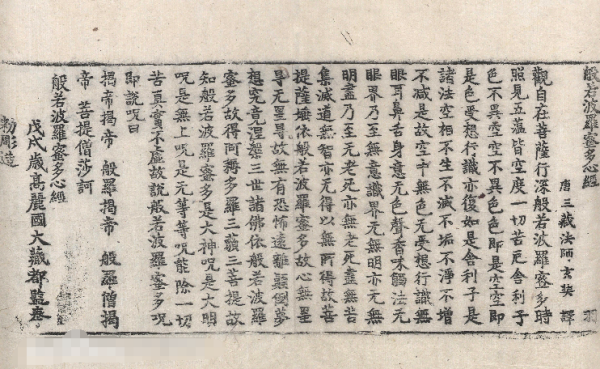 般若波羅蜜多心經 羽
唐三藏法師玄奘 譯
觀自在菩薩行深般若波羅蜜多時
照見五蘊皆空度一切苦厄舍利子
色不異空空不異色色即是空空即
是色受想行識亦復如是舍利子是
諸法空相不生不滅不垢不淨不增
不減是故空中無色无受想行識無
眼耳鼻舌身意无色聲香味觸法无
眼界乃至無意識界无無明亦无無
明盡乃至无老死亦無老死盡無苦
集滅道無智亦无得以無所得故菩
提薩埵依般若波羅蜜多故心無罣
礙无罣礙故無有恐怖遠離顚倒夢
想究竟涅槃三世諸佛依般若波羅
蜜多故得阿耨多羅三藐三菩提故
知般若波羅蜜多是大神呪是大明
呪是無上呪是无等等呪能除一切
苦真實不虛故說般若波羅蜜多呪
即說呪曰
揭帝揭帝 般羅揭帝 般羅僧揭
帝 菩提僧莎訶
般若波羅蜜多心經
戊戌歲高麗國大藏都監奉
勅彫造